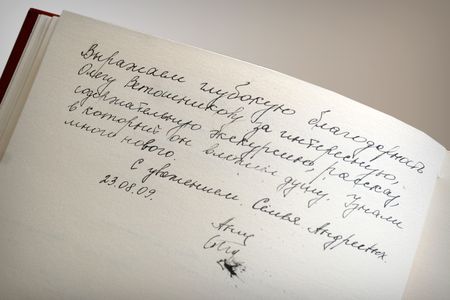 Выражаем глубокую благодарность
Олегу Ветошникову за интересную,
содержательную экскурсию, рассказ,
в который он вложил душу. Узнали
много нового.
С уважением. Семья Андреевых.
23.08.09.